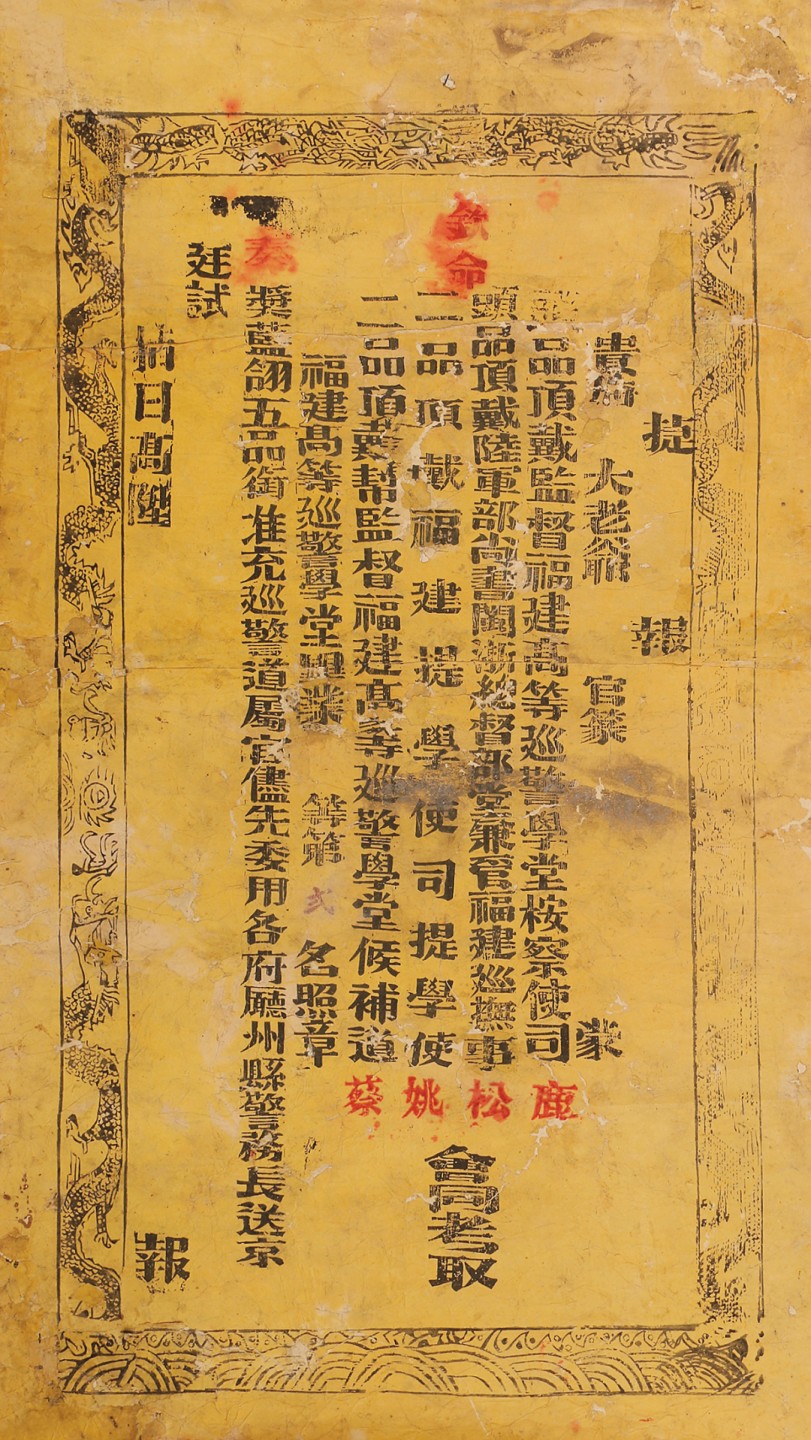 捷報
貴府 大老爺 官篆 蒙
品頂戴監督福建高等巡警學堂桉察使司鹿
欽命
頭品頂戴陸軍部尚書閩浙總督部堂兼管福建巡撫事松
二品頂戴福建提學使司提學使姚
二品頂戴幫監督福建高等巡警學堂候補道蔡
會同考取
福建高等巡警學堂畢業 等第弍名照章
奏
獎藍翎五品銜准充巡警道屬官儘先委用各府廳州縣警務長送京
廷試
指日高陞 報